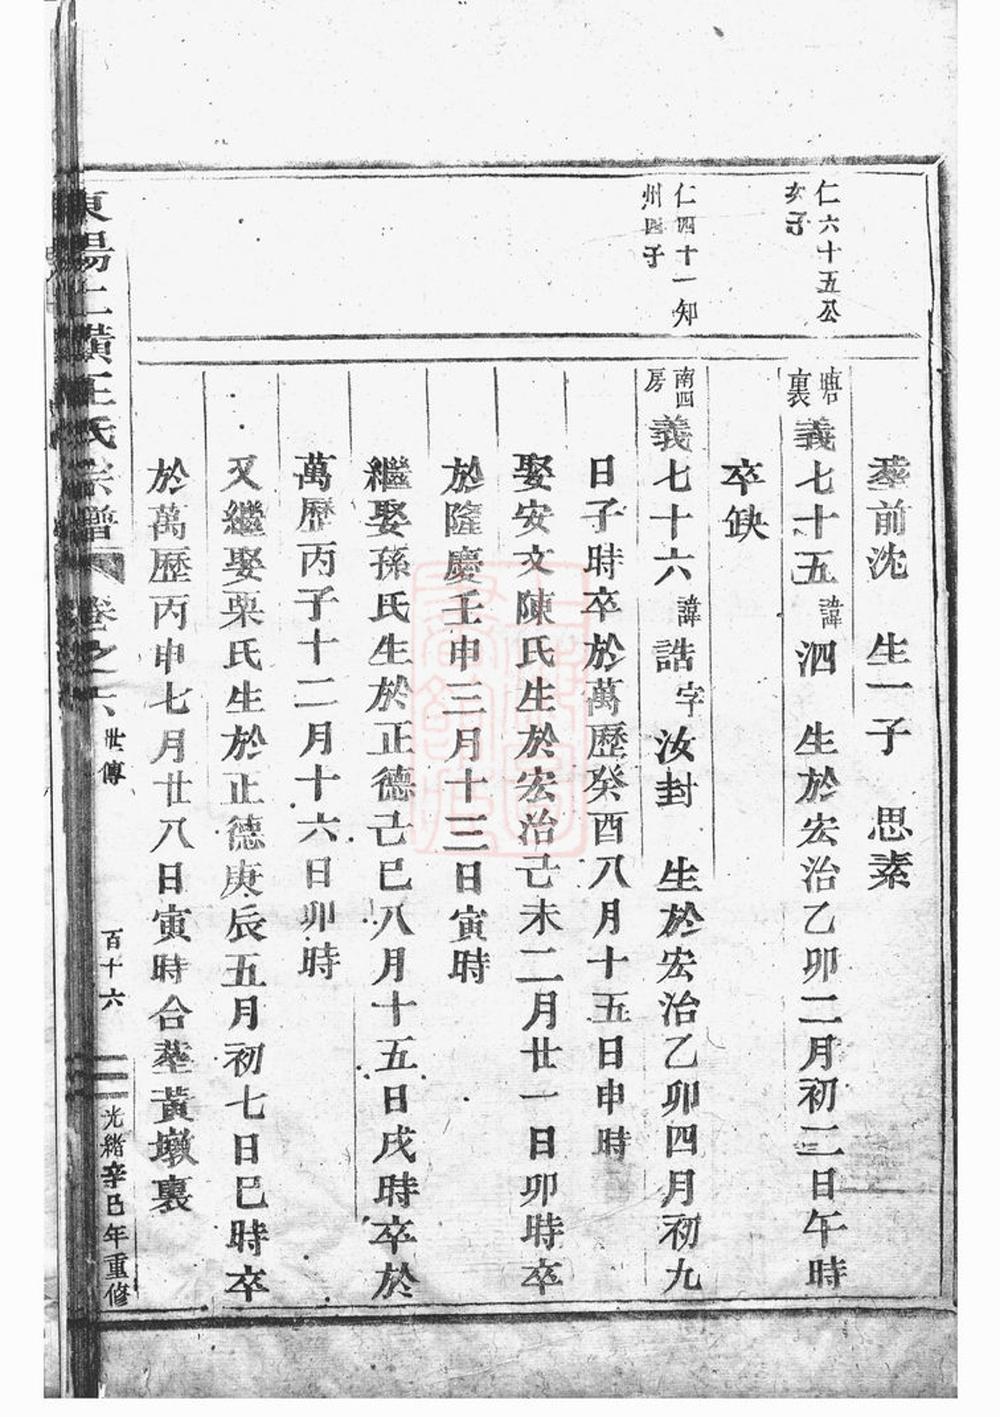 仁六十五公
次子
仁四十一知
州四子
塟前沈　生一子　思素
裏
義七十五諱泗　生於宏治乙卯二月初二日午時
卒缺
南四
房
義七十六諱誥字汝封　生於宏治乙卯四月初九
日子時卒於萬歷癸酉八月十五日申時
娶安文陳氏生於宏治己未二月廿一日卯時卒
於隆慶壬申三月十三日寅時
繼娶孫氏生於正德己巳八月十五日戌時卒於
萬歷丙子十二月十六日卯時
又繼娶栗氏生於正德庚辰五月初七日巳時卒
於萬歷丙申七月廿八日寅時合塟黃墩裏
東陽上璜王氏宗譜　卷之六　世傳　百十六　光緒辛巳年重修